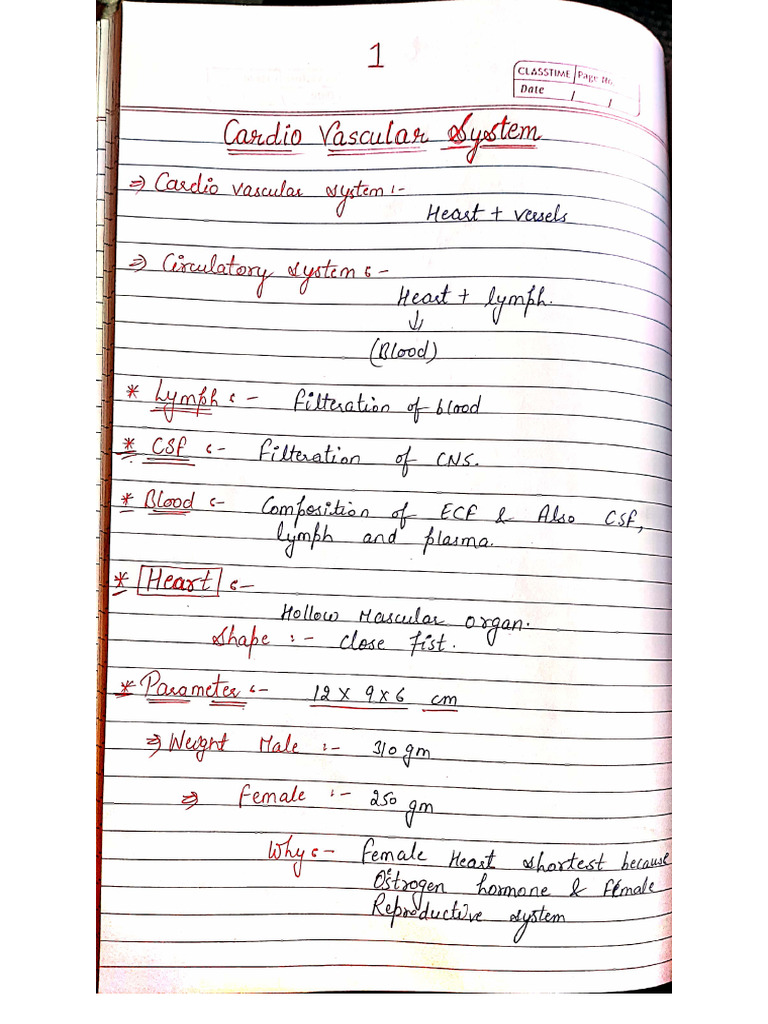 1
CLASSTIME Page No.
Date / /
Cardio Vascular System
⇒ Cardio vascular system :-
Heart + vessels
⇒ Circulatory system :-
Heart + lymph.
↓
(Blood)
* Lymph :- Filteration of blood
* CSF :- Filteration of CNS.
* Blood :- Composition of ECF & Also CSF,
lymph and plasma.
* Heart :-
Hollow Mascular organ.
Shape :- close fist.
* Parameter :- 12 x 9 x 6 cm
⇒ Weight Male :- 310 gm
⇒ Female :- 250 gm
Why :- Female Heart shortest because
Ostrogen hormone & Female
Reproductive system